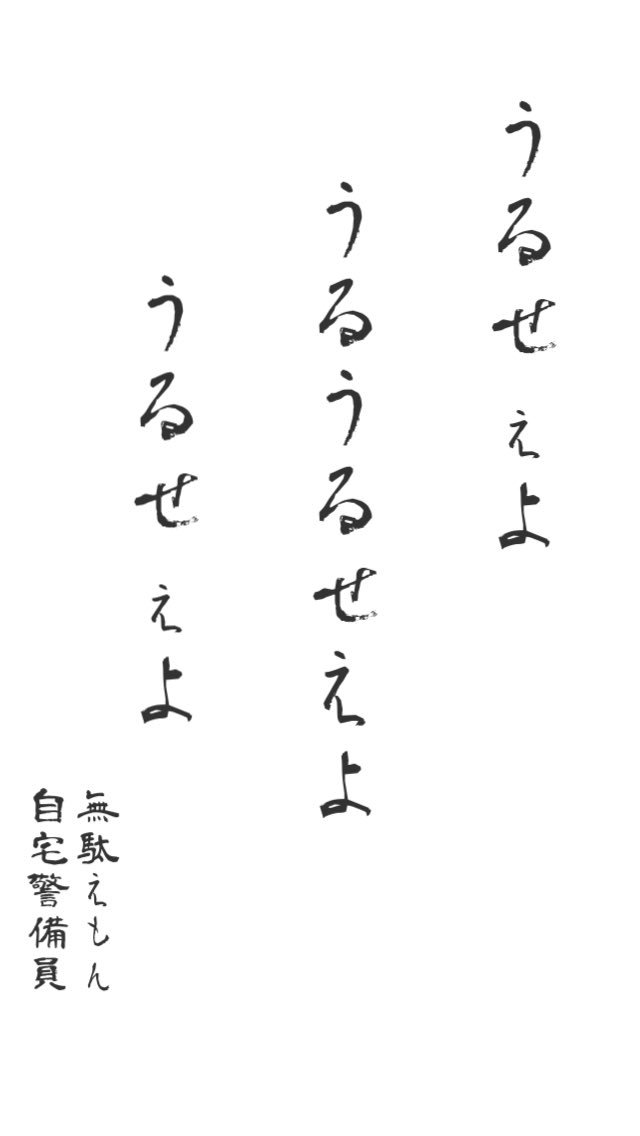 うるせぇよ
うるうるせえよ
うるせぇよ
無駄えもん
自宅警備員